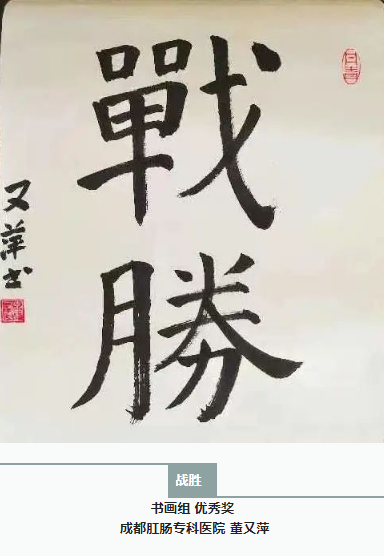 戰勝
又萍书
战胜
书画组 优秀奖
成都肛肠专科医院 董又萍